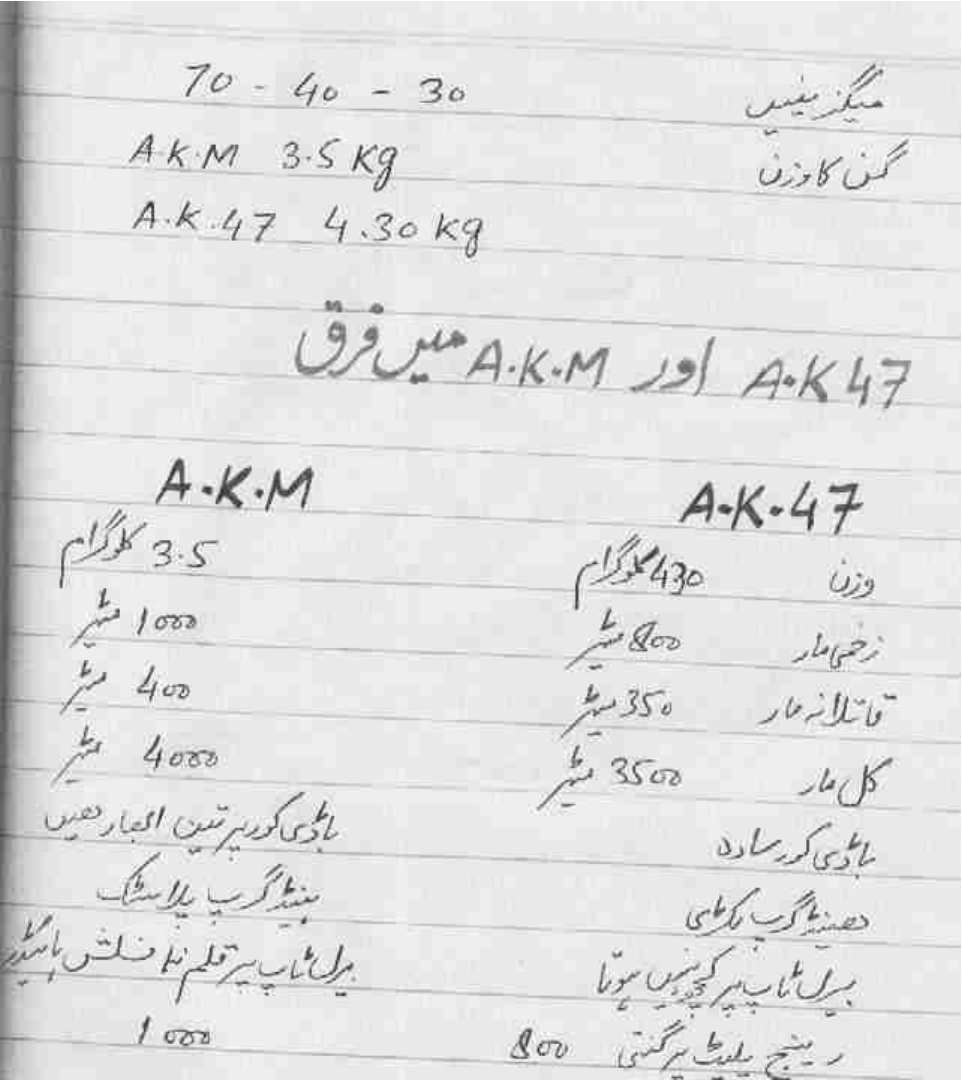 میگزینیں 30 - 40 - 70
گن کا وزن A.K.M 3.5 Kg
A.K.47 4.30 Kg
A.K 47 اور A.K.M میں فرق
A.K.47 A.K.M
وزن 430 کلوگرام 3.5 کلوگرام
زخمی مار 800 میٹر 1000 میٹر
قاتلانہ مار 350 میٹر 400 میٹر
کل مار 3500 میٹر 4000 میٹر
باڈی کور سادہ باڈی کور پر تین ابھار ھیں
ھینڈ گرپ لکڑی ہینڈ گرپ پلاسٹک
بیرل ٹاپ پر کچھ نہیں ہوتا بیرل ٹاپ پر قلم نما فلش ہائیڈر
رینج پلیٹ پر گنتی 800 1000